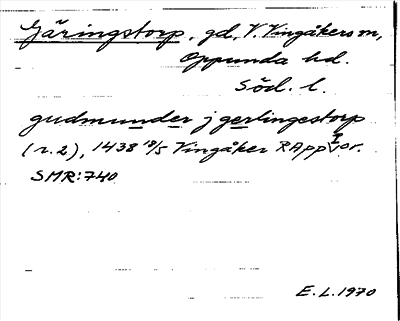 Gäringstorp, gd, V. Vingåkers sn,
Oppunda hd.
Söd. l.
gudmunder j gerlingestorp
(r. 2), 1438 18/5 Vingåker RAppror.
SMR:740
E.L.1970